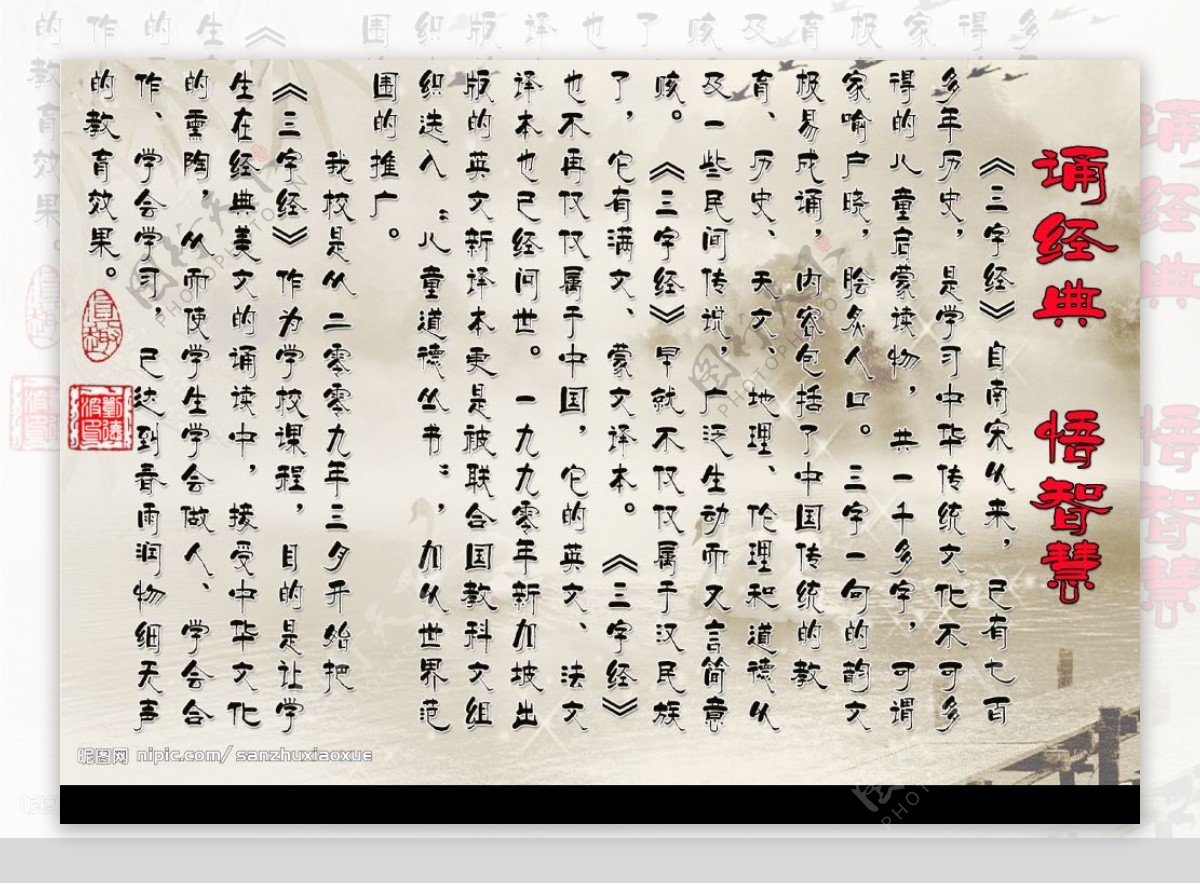 诵经典 悟智慧
《三字经》自南宋以来,已有七百
多年历史,是学习中华传统文化不可多
得的儿童启蒙读物,共一千多字,可谓
家喻户晓,脍炙人口。三字一句的韵文
极易成诵,内容包括了中国传统的教
育、历史、天文、地理、伦理和道德以
及一些民间传说,广泛生动而又言简意
咳。《三字经》早就不仅仅属于汉民族
了,它有满文、蒙文译本。《三字经》
也不再仅仅属于中国,它的英文、法文
译本也已经问世。一九九零年新加坡出
版的英文新译本更是被联合国教科文组
织选入“儿童道德丛书”,加以世界范
围的推广。
我校是从二零零九年三月开始把
《三字经》作为学校课程,目的是让学
生在经典美文的诵读中,接受中华文化
的熏陶,从而使学生学会做人、学会合
作、学会学习,已达到春雨润物细无声
的教育效果。
昵图网 nipic.com/sanzhuxiaoxue